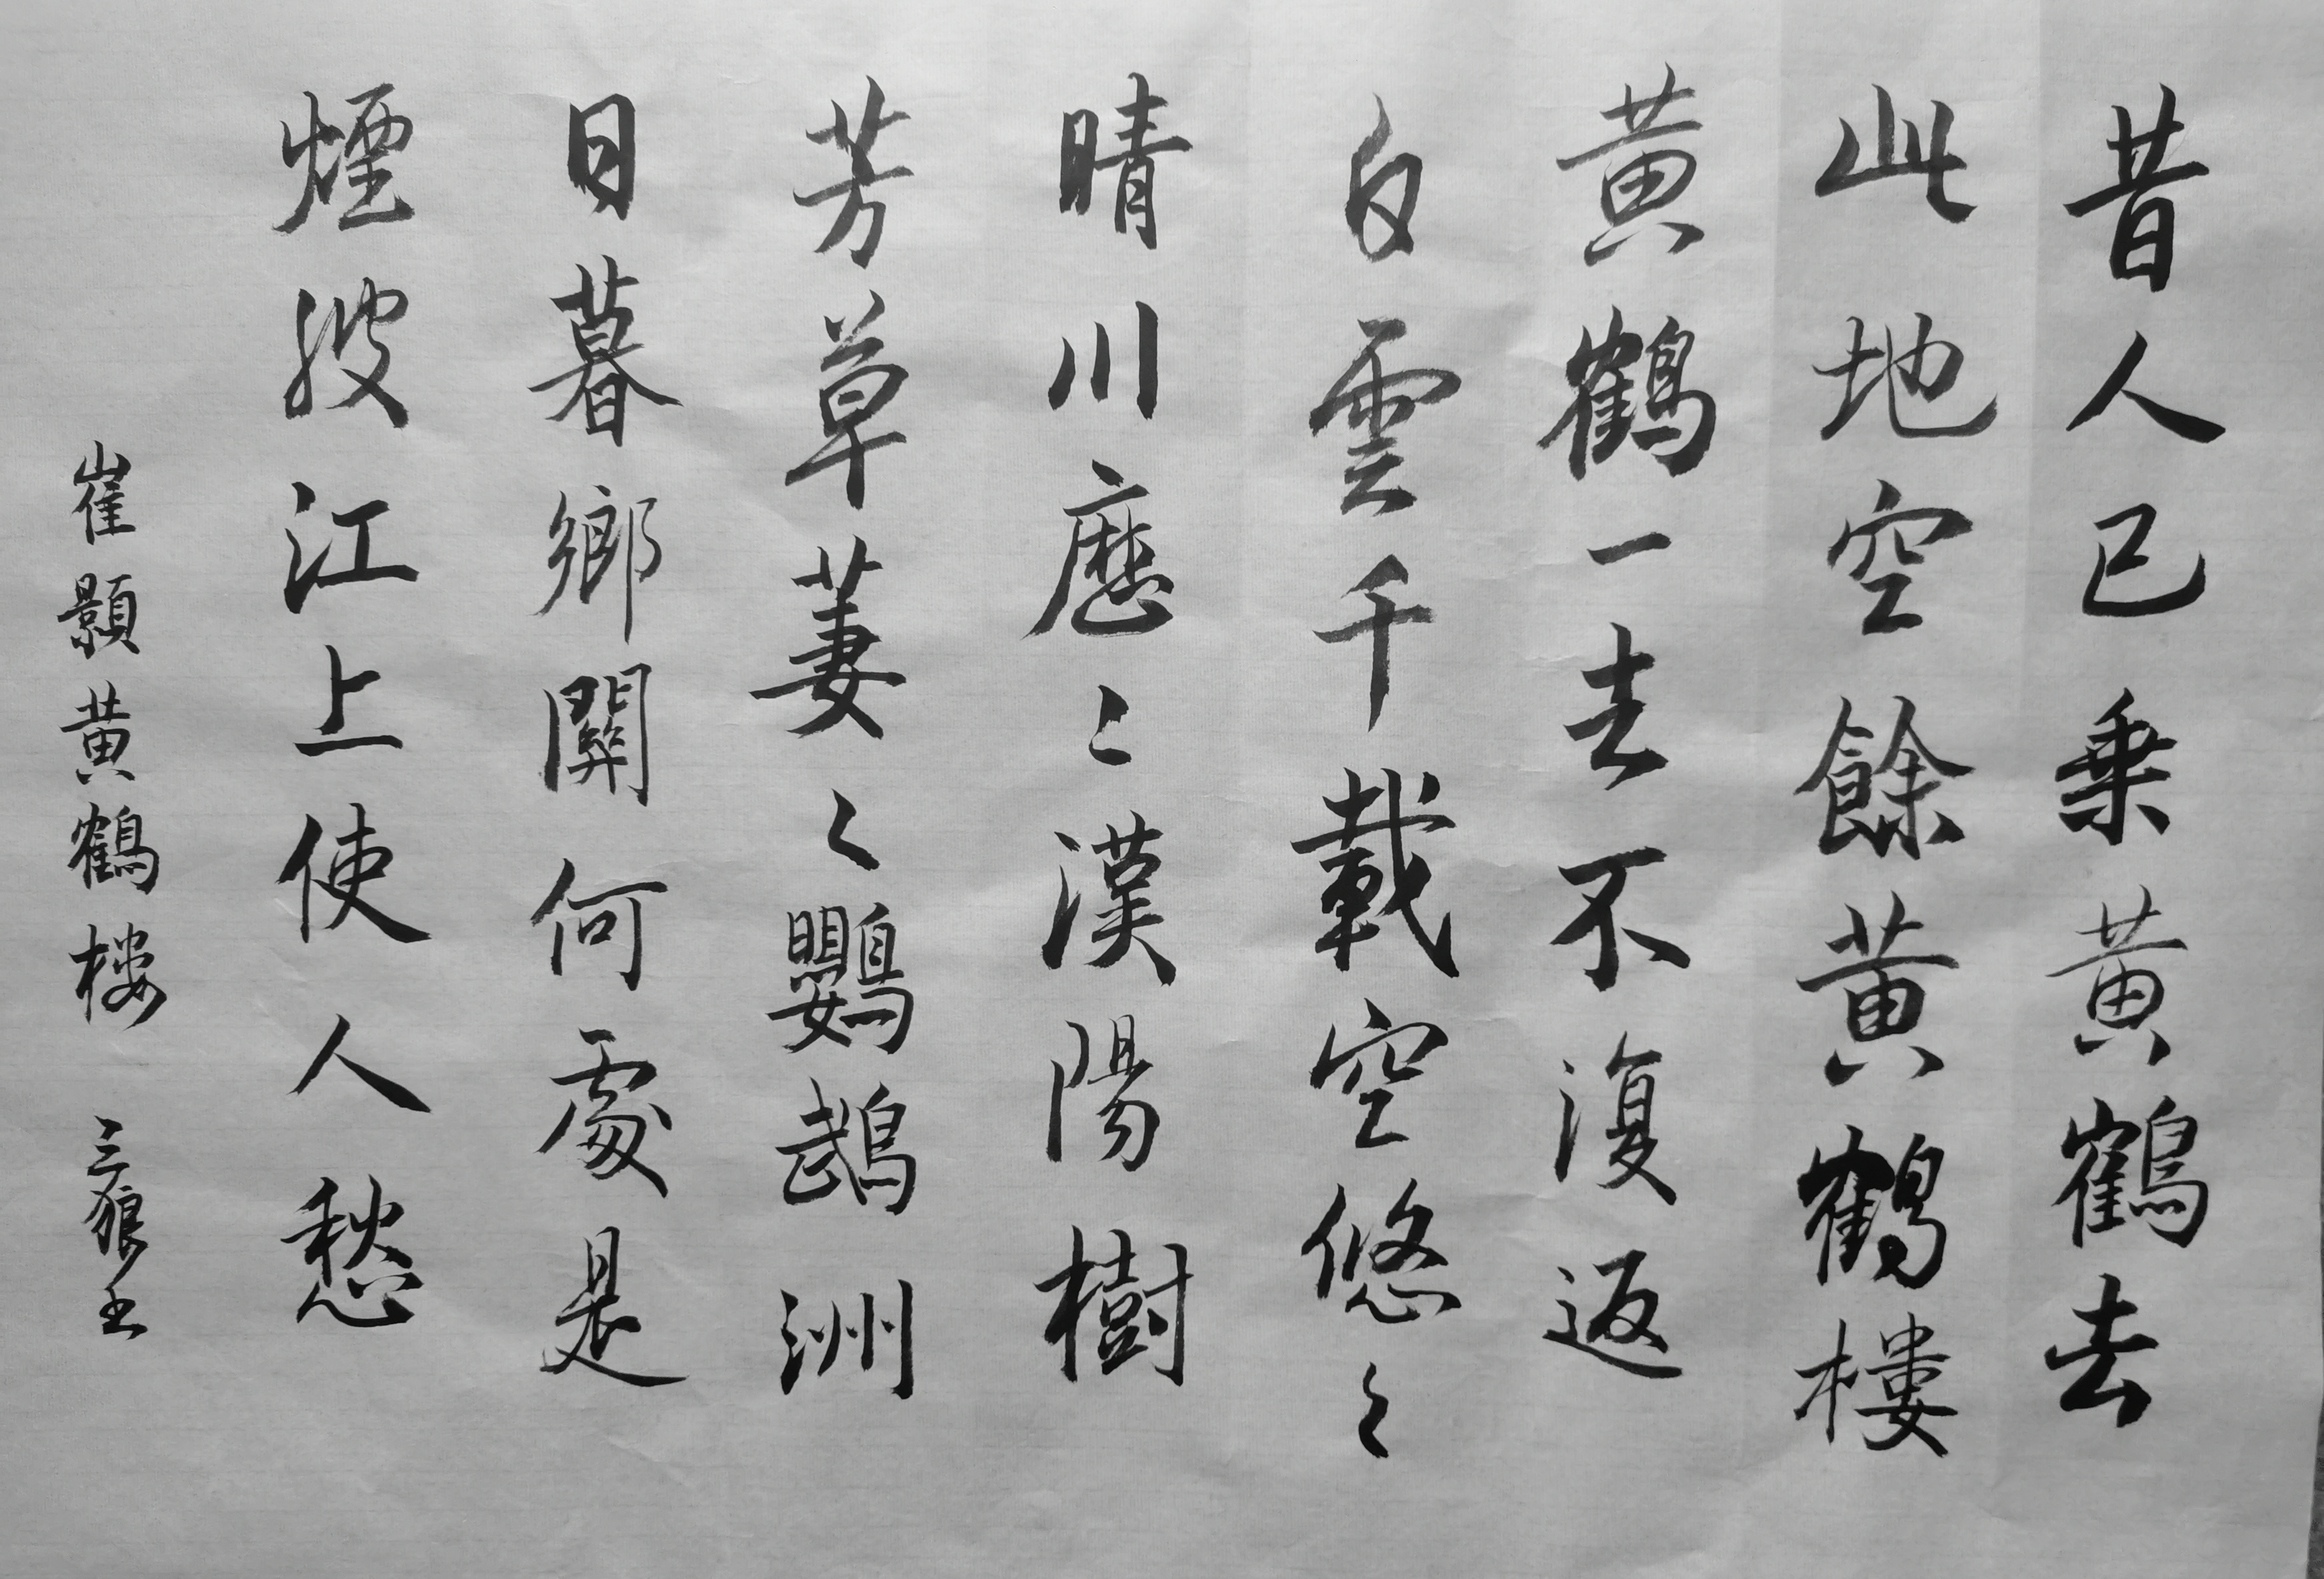 昔人已乗黄鶴去
此地空餘黄鶴樓
黄鶴一去不復返
白雲千載空悠々
晴川歷々漢陽樹
芳草萋々鸚鵡洲
日暮鄉關何處是
煙波江上使人愁
崔顥黄鶴樓 三狼土